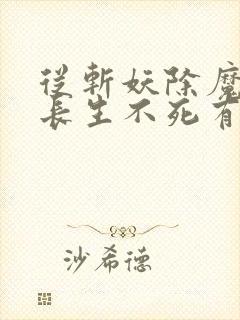 從斬妖除魔
長生不死
沙希德